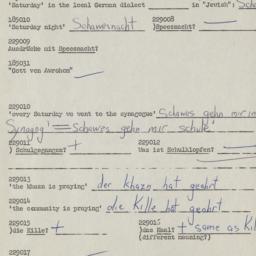 'Saturday' in the local German dialect ________ in "Jewish": Scha
185010 229008
'Saturday night' Schawernacht )Speeznacht?
229009
Ausdrücke mit Speeznacht?
185031
"Gott von Awrohom"
229010
'every Saturday we went to the synagogue' Schawes gehn mir in
Synagog' = Schawes gehn mir schule
229011 229012
) Schulgegangen? + Was ist Schulklopfen?
229013
'the khazn is praying' der khazn hat geohrt
229014
'the community is praying' die Kille hat geohrt
229015 229016
)die Kille? + )das Kaal? + same as Kil
(different meaning?)
229017